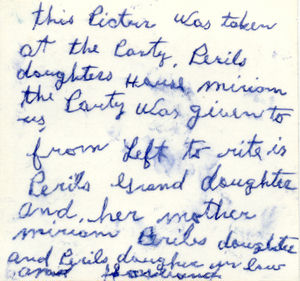 this Pictur was taken
at the Party, Perils
daughters House miriam
the Party was given to
us,
from Left to rite is
Perils Grand daughter
and, her mother
miriam Perils daughter
and Perils daugher in law
and